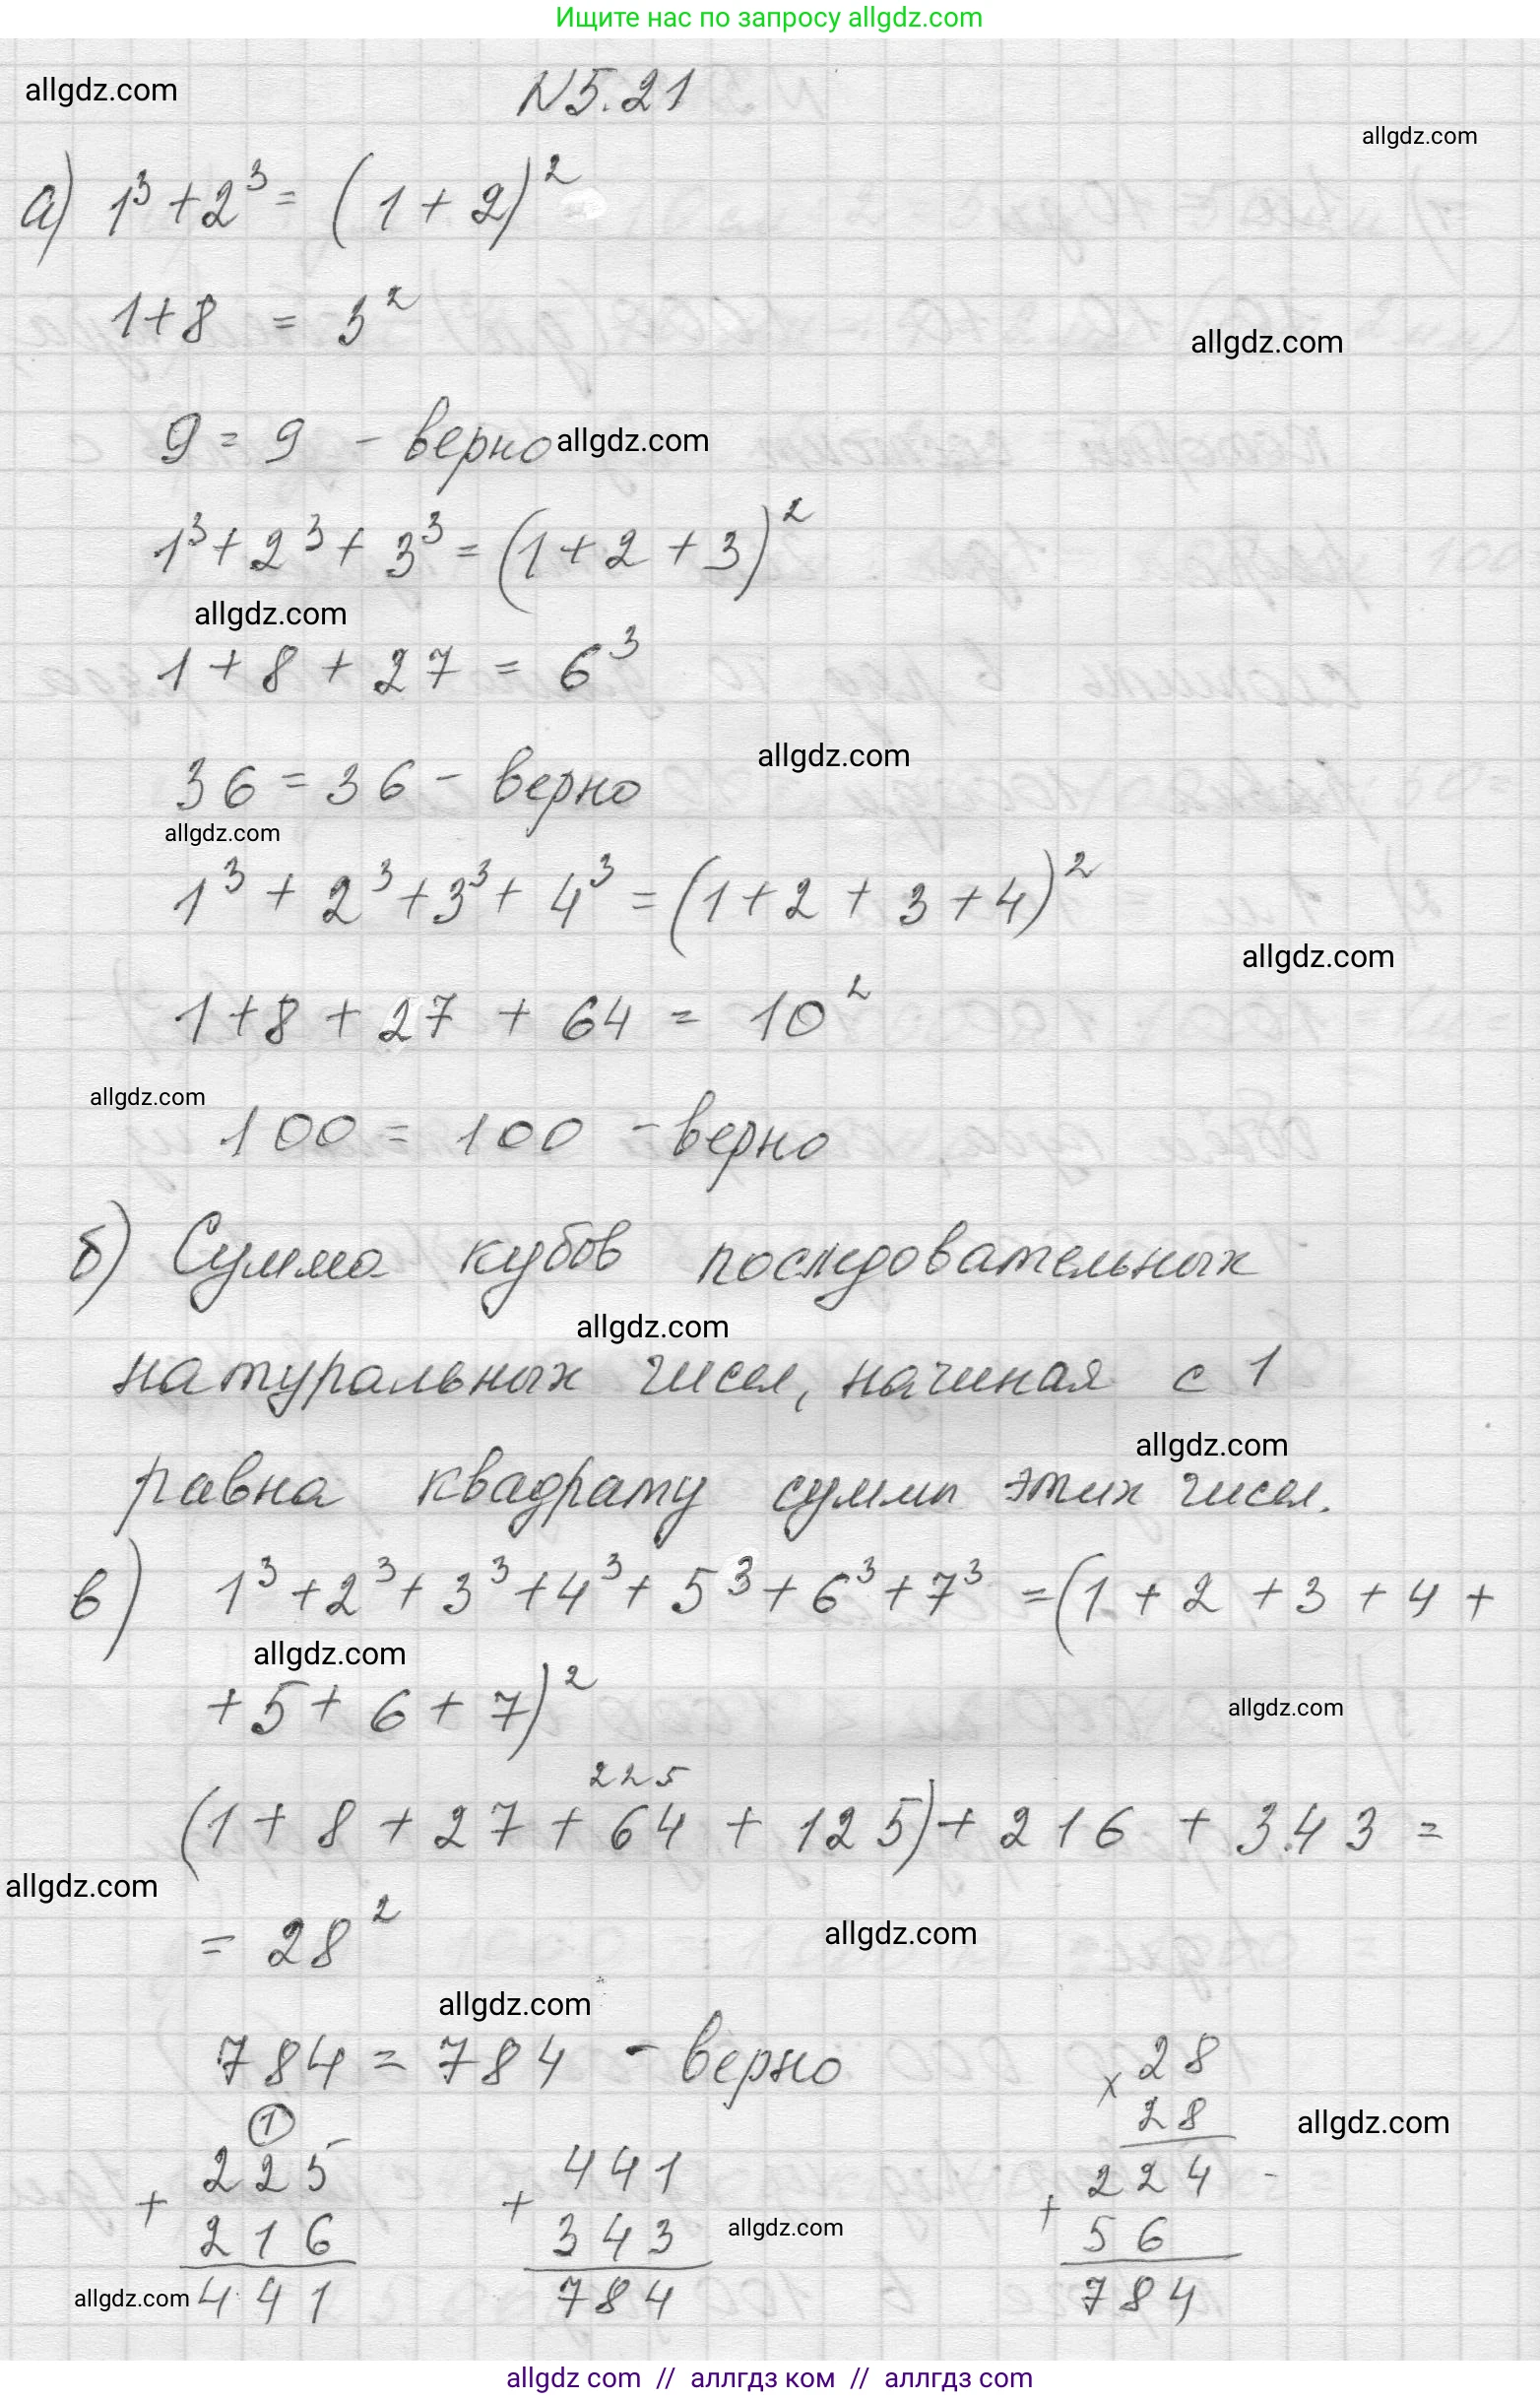 Ищите нас по запросу allgdz.com
allgdz.com
N5.21
allgdz.com
а) 1³ + 2³ = (1 + 2)²
1 + 8 = 3²
allgdz.com
9 = 9 - верно allgdz.com
1³ + 2³ + 3³ = (1 + 2 + 3)²
allgdz.com
1 + 8 + 27 = 6³
allgdz.com
36 = 36 - верно
allgdz.com
1³ + 2³ + 3³ + 4³ = (1 + 2 + 3 + 4)²
allgdz.com
1 + 8 + 27 + 64 = 10²
allgdz.com
100 = 100 - верно
б) Сумма кубов последовательных
allgdz.com
натуральных чисел, начиная с 1
allgdz.com
равна квадрату суммы этих чисел.
в) 1³ + 2³ + 3³ + 4³ + 5³ + 6³ + 7³ = (1 + 2 + 3 + 4 +
allgdz.com
+ 5 + 6 + 7)²
allgdz.com
225
(1 + 8 + 27 + 64 + 125) + 216 + 343 =
allgdz.com
= 28²
allgdz.com
allgdz.com
784 = 784 - верно
1
225
+
216
441
441
+
343
784
28
x
28
224
+
56
784
allgdz.com
allgdz.com
allgdz.com
allgdz.com // аллгдз ком // аллгдз.com